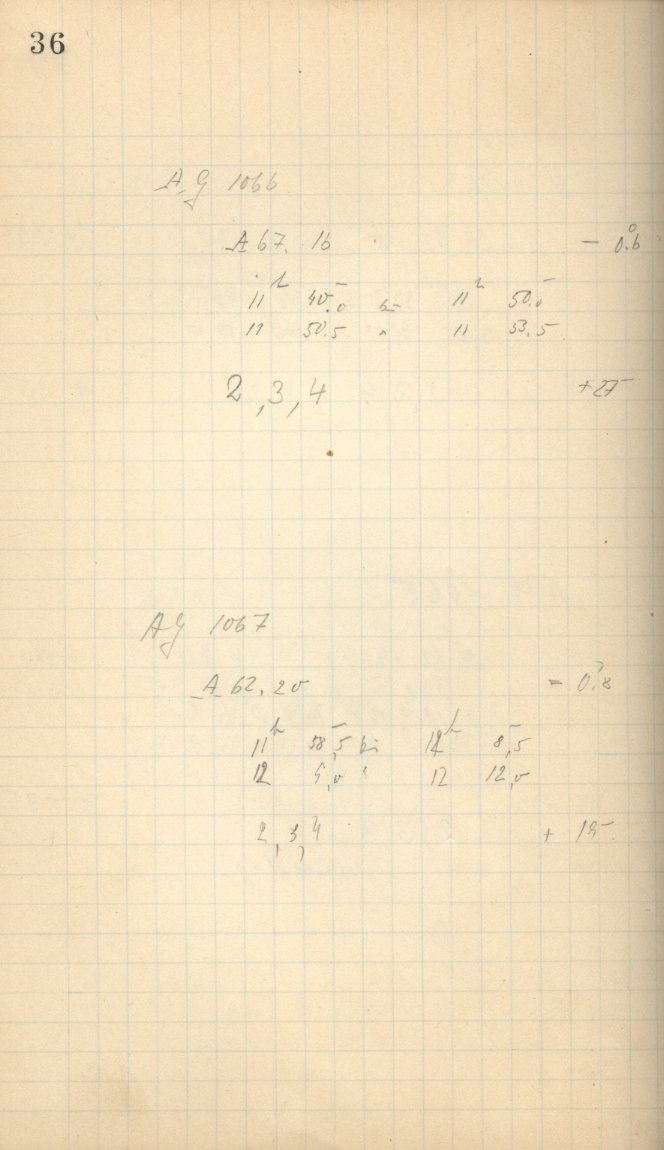 36
AG 1066
A 67. 16 - 0°.6
11h 40.0 bis 11h 50.0
11 50.5 " 11 53.5
2, 3, 4 +25
AG 1067
A 62. 20 - 0°.8
11h 58,5 bis 12h 8,5
12 9,0 " 12 12,0
2, 3, 4 + 15